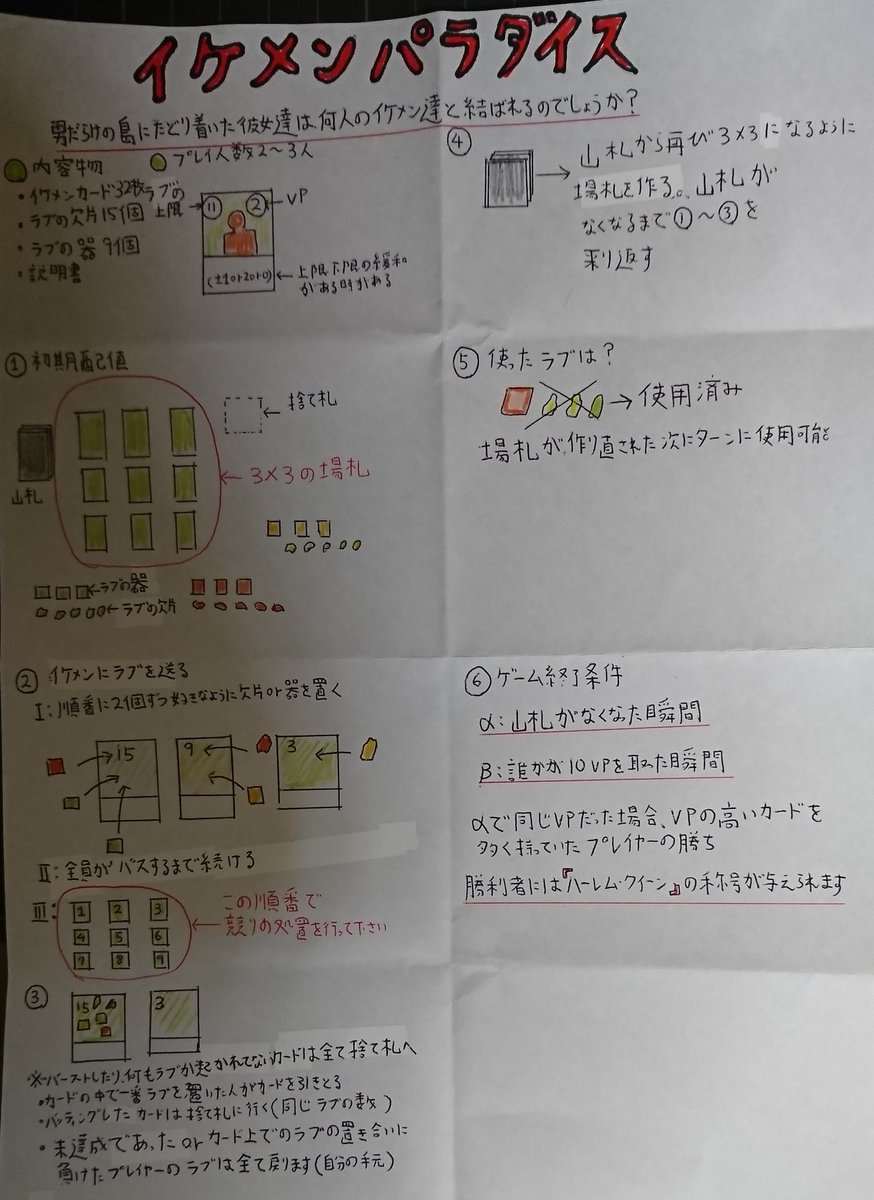 イケメンパラダイス
男だらけの島にたどり着いた彼女達は、何人のイケメン達と結ばれるのでしょうか？
内容物
プレイ人数2～3人
・イケメンカード32枚
・ラブの欠片15個
・ラブの器9個
・説明書
ラブの
上限
11
2
VP
(±1or2or0)
上限下限の緩和
がある時がある
① 初期配置
山札
捨て札
3×3の場札
ラブの器
ラブの欠片
② イケメンにラブを送る
I：順番に2個ずつ好きなように欠片or器を置く
15
9
3
II：全員がパスするまで続ける
III：
1 2 3
4 5 6
7 8 9
この順番で
競りの処置を行って下さい
③
15
3
※バーストしたり、何もラブが起かれてないカードは全て捨て札へ
・カードの中で一番ラブを置いた人がカードを引きとる
・バッティングしたカードは捨て札に行く(同じラブの数)
・未達成であったorカード上でのラブの置き合いに
負けたプレイヤーのラブは全て戻ります(自分の手元)
④
山札から再び3×3になるように
場札を作る。山札が
なくなるまで①～③を
釆り返す
⑤ 使ったラブは？
使用済み
場札が作り直された次にターンに使用可能
⑥ ゲーム終了条件
α：山札がなくなった瞬間
B：誰かが10VPを取った瞬間
αで同じVPだった場合、VPの高いカードを
多く持っていたプレイヤーの勝ち
勝利者には『ハーレム・クイーン』の称号が与えられます